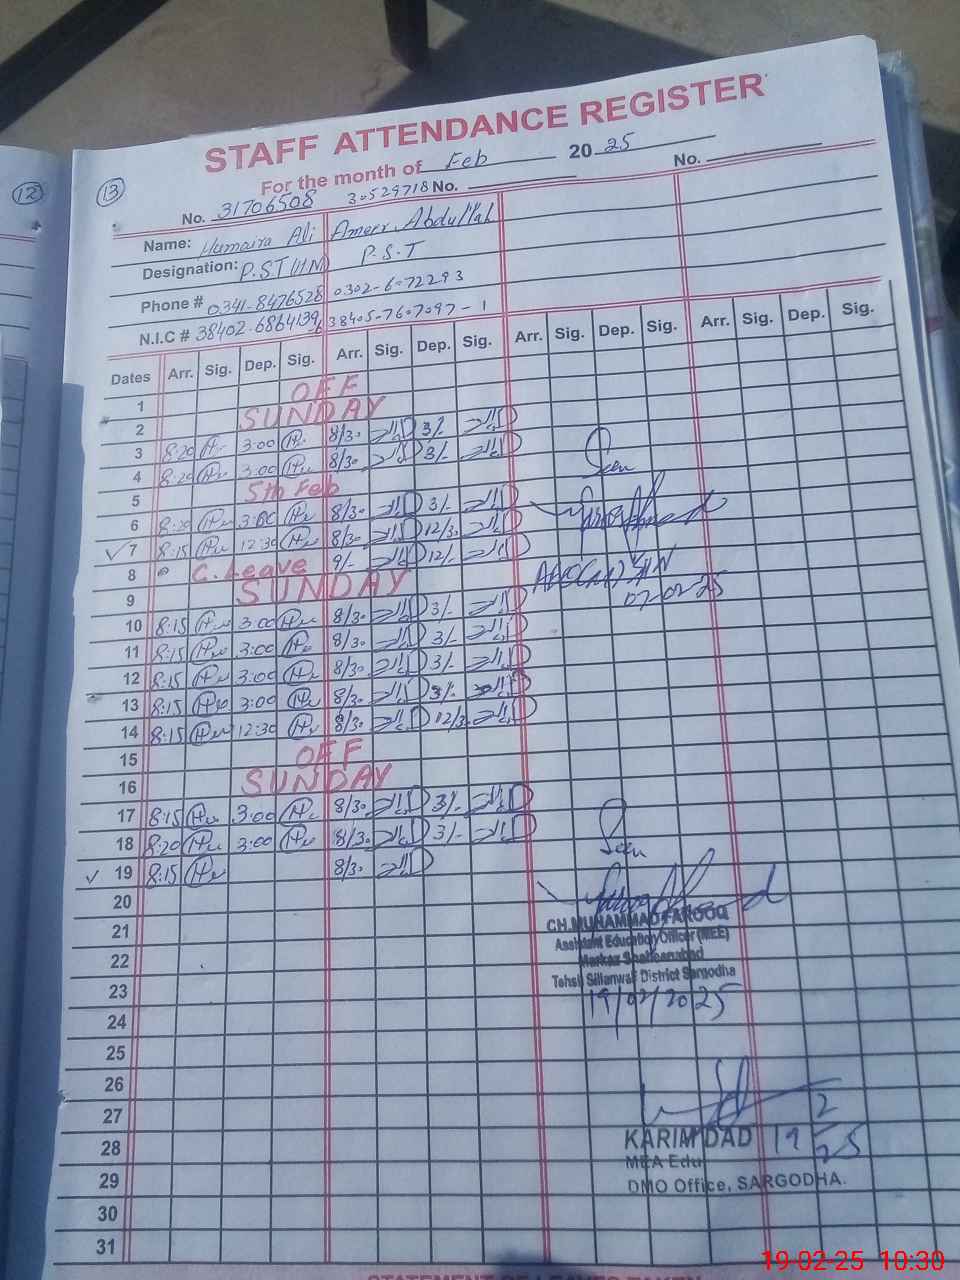 STAFF ATTENDANCE REGISTER
For the month of Feb 2025
12
13
No. 31706508 30529718 No. No.
Name: Humaira Ali Ameer Abdullah
Designation: P.S.T (H.M) P.S.T
Phone # 0341-8476528 0302-6072293
N.I.C # 38402-6864139 38405-7607097-1
Dates Arr. Sig. Dep. Sig. Arr. Sig. Dep. Sig. Arr. Sig. Dep. Sig. Arr. Sig. Dep. Sig.
1 OFF
2 SUNDAY
3 8:20 3:00 8/30 3/-
4 8:20 3:00 8/30 3/-
Seen
5 5th Feb
6 8:20 3:00 8/30 3/-
7 8:15 12:30 8/30 12/30
8 C. Leave 9/- 12/-
9 SUNDAY
07-02-25
10 8:15 3:00 8/30 3/-
11 8:15 3:00 8/30 3/-
12 8:15 3:00 8/30 3/-
13 8:15 3:00 8/30 3/-
14 8:15 12:30 8/30 12/30
15 OFF
16 SUNDAY
17 8:15 3:00 8/30 3/-
18 8:20 3:00 8/30 3/-
Seen
19 8:15 8/30
20
21
CH.MUHAMMAD FAROOQ
Assistant Education Officer (MEE)
22
Markaz Shaheenabad
Tehsil Sillanwali District Sargodha
23
19/02/2025
24
25
26
27
28
KARIM DAD 19/2/25
MEA Edu
29
DMO Office, SARGODHA.
30
31
STATEMENT OF LEAVES TAKEN
19-02-25 10:30